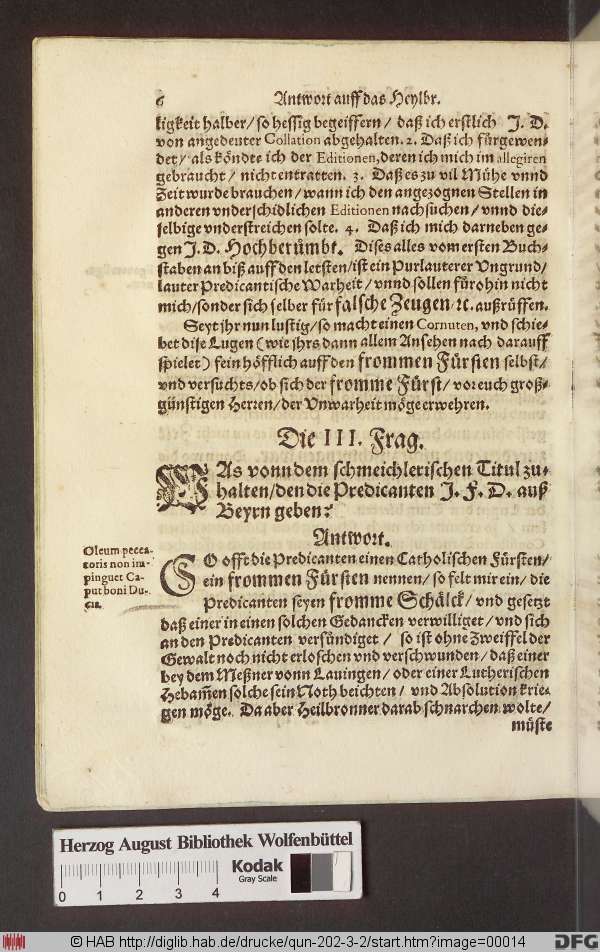 6 Antwort auff das Heylbr.
kigkeit halber/ so hessig begeiffern/ daß ich erstlich J. D.
von angedeuter Collation abgehalten. 2. Daß ich fürgewen-
det/ als köndte ich der Editionen, deren ich mich im allegiren
gebraucht/ nicht entratten. 3. Daß es zu vil Mühe vnnd
Zeit wurde brauchen/ wann ich den angezognen Stellen in
anderen vnderschidlichen Editionen nachsuchen/ vnnd die-
selbige vnderstreichen solte. 4. Daß ich mich darneben ge-
gen J. D. Hochberümbt. Dises alles vom ersten Buch-
staben an biß auff den letsten/ ist ein Purlauterer Vngrund/
lauter Predicantische Warheit/ vnnd sollen fürohin nicht
mich/ sonder sich selber für falsche Zeugen/ ꝛc. außrüffen.
Seyt jhr nun lustig/ so macht einen Cornuten, vnd schie-
bet dise Lugen (wie jhrs dann allem Ansehen nach darauff
spielet) fein höfflich auff den frommen Fürsten selbst/
vnd versuchts/ ob sich der fromme Fürst/ vor euch groß-
günstigen Herren/ der Vnwarheit möge erwehren.
Die III. Frag.
WAs vonn dem schmeichlerischen Titul zu-
halten/ den die Predicanten J. F. D. auß
Beyrn geben?
Antwort.
Oleum pecca-
toris non im-
pinguet Ca-
put boni Du-
cis.
SO offt die Predicanten einen Catholischen Fürsten/
ein frommen Fürsten nennen/ so felt mir ein/ die
Predicanten seyen fromme Schälck/ vnd gesetzt
daß einer in einen solchen Gedancken verwilliget/ vnd sich
an den Predicanten versündiget/ so ist ohne Zweiffel der
Gewalt noch nicht erloschen vnd verschwunden/ daß einer
bey dem Meßner vonn Lauingen/ oder einer Lutherischen
Hebam̃en solche sein Noth beichten/ vnd Absolution krie-
gen möge. Da aber Heilbronner darab schnarchen wolte/
müste
Herzog August Bibliothek Wolfenbüttel
0 1 2 3 4
Kodak
Gray Scale
© HAB http://diglib.hab.de/drucke/qun-202-3-2/start.htm?image=00014
DFG